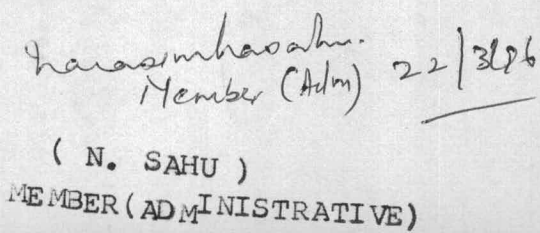 Narasimhasahu.
Member (Adm) 22/3/96
( N. SAHU )
MEMBER(ADMINISTRATIVE)